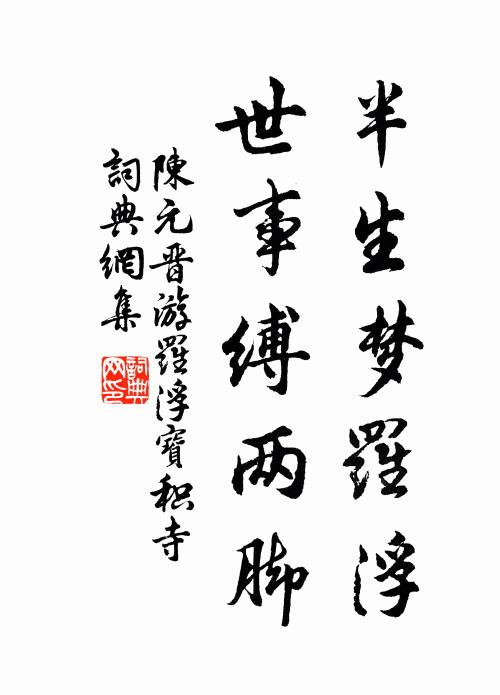 半生梦羅浮
世事缚两脚
陳元晋游羅浮寶积寺
詞典網集
詞典网印